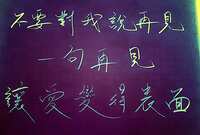 不要對我說再見
一句再見
讓愛變得表面